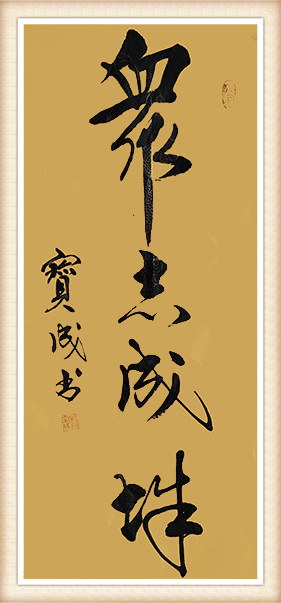 衆志成城
寶成书